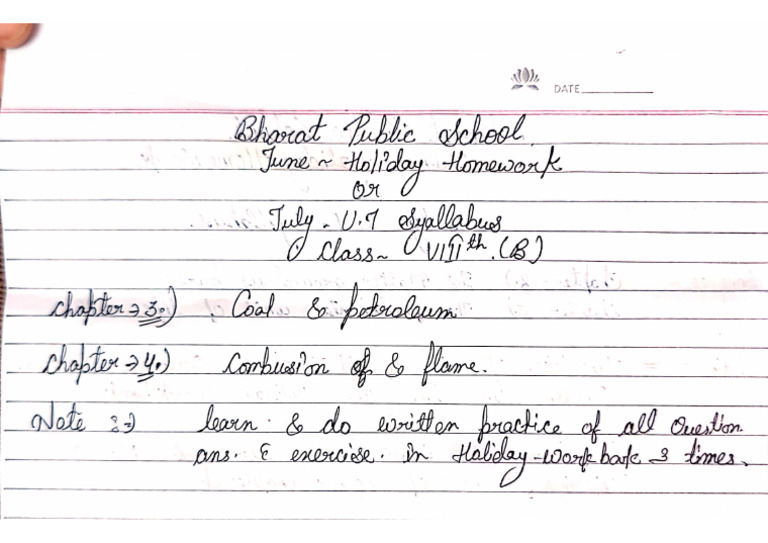 DATE
Bharat Public School.
June ~ Holiday Homework
Or
July - U.T Syallabus
Class ~ VIIIth. (B)
Chapter → 3.) Coal & petroleum
Chapter → 4.) Combusion of & flame.
Note :-) learn & do written practice of all Question
ans. & exercise. In Holiday-work 3 times.